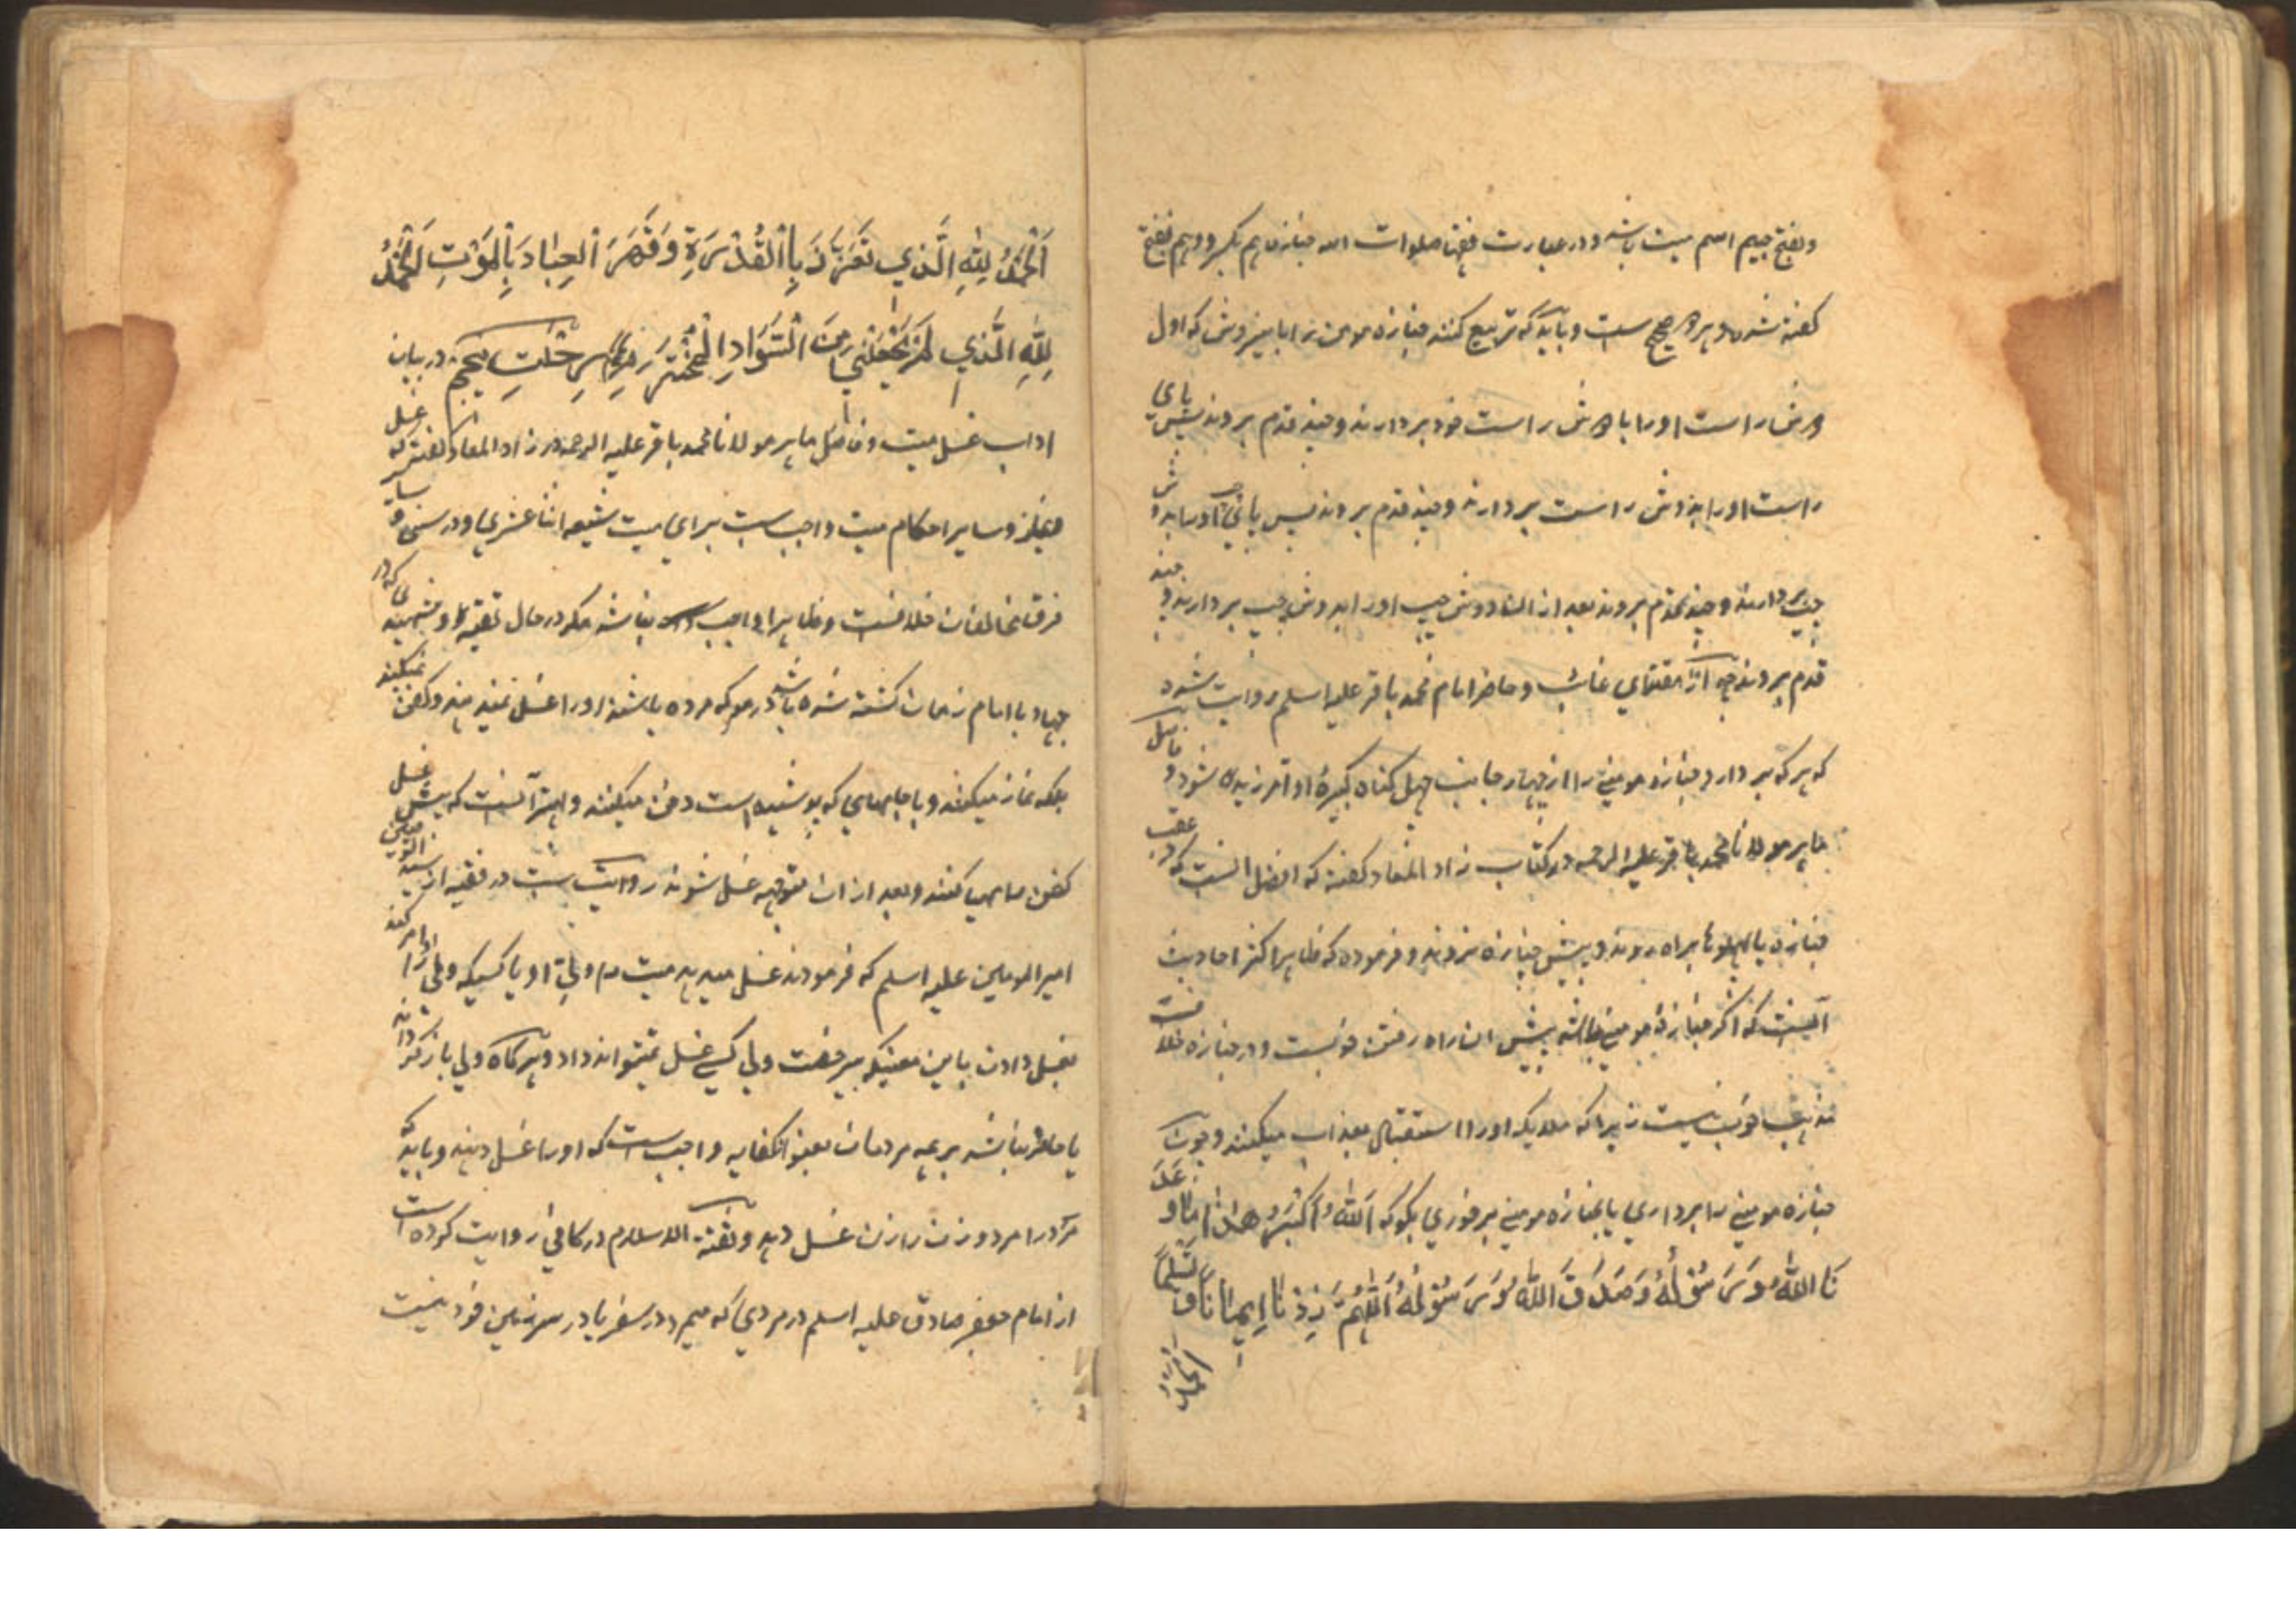 وبفتح جیم اسم میت باشد ودر عبارت فقها صلوات الله جنازه هم بکسر وهم بفتح
کفته شده وهر دو صحیح ست وباید که تربیع کنند جنازه مومن را باینروش که اول
دوش راست او را با دوش راست خود بردارند وچند قدم بروند پس پای
راست او را بدوش راست بردارند وچند قدم بروند پس پای چپ او را بدوش
چپ بردارند وچند قدم بروند بعد از ان دوش چپ او را بدوش چپ بردارند وچند
قدم بروند چه از مقتدای غائب وحاضر امام محمد باقر علیه اسلم روایت شده
که هر که بر دارد جنازه مومنی را از چهار جانب چهل کناه کبیرهٔ او آمرزیده شود وفاضل
ماهر مولانا محمد باقر علیه الرحمه در کتاب زاد المعاد کفته که افضل انست که در عقب
جنازه یا پهلوها براه روند وپیش جنازه نروند وفرموده که ظاهر اکثر احادیث
آنست که اکر جنازهٔ مومنی باشد پیش ان راه رفتن خوبست ودر جنازه خلاف
مذهب خوب نیست زیرا که ملایکه او را استقبال بعذاب میکنند وچون
جنازه مومنی را برداری یا بجنازه مومنی برخوری بکو که اَللّٰهُ اَکْبَرُ هٰذَا مَا وَعَدَ
نَا اللّٰهُ وَرَسُوْلُهُ وَصَدَقَ اللّٰهُ وَرَسُوْلُهُ اَللّٰهُمَّ زِدْنَا اِیْمَانًا وَتَسْلِیْمًا
اَلْحَمْدُ
اَلْحَمْدُ لِلّٰهِ الَّذِي تَعَزَّزَ بِالْقُدْرَةِ وَقَهَرَ الْعِبَادَ بِالْمَوْتِ اَلْحَمْدُ
لِلّٰهِ الَّذِي لَمْ يَجْعَلْنِي مِنَ السَّوَادِ الْمُخْتَرَمِ در بیان
اداب غسل میت وفاضل ماهر مولانا محمد باقر علیه الرحمه در زاد المعاد کفته که غسل
ونماز وسایر احکام میت واجب ست برای میت شیعه اثنا عشری ودر سنی وسایر
فرق مخالفان خلافست وظاهرا واجب نباشد مکر در حال تقیه وشهیدی که در
جهاد با امام زمان کشته شده باشد در معرکه مرده باشد او را غسل نمیدهند وکفن نمیکنند
بلکه نماز میکنند وبا جامهای که پوشیده است دفن میکنند وبهتر آنست که پیش غسل
کفن مهیا کنند وبعد از ان متوجه غسل شوند روایت ست در فقیه از سید الوصیین
امیر المومنین علیه اسلم که فرمودند غسل میدهد میت را ولی او یا کسیکه ولی او را امر کند
بغسل دادن باین معنیکه بیرخصت ولی کسی غسل نمیتواند داد وهرکاه ولی باز کرداند
یا حاضر نباشد بر همه مردمان بعنوان کفایه واجب ست که او را غسل دهند وباید که
مرد را مرد وزن را زن غسل دهد وثقة الاسلام در کافی روایت کرده است
از امام جعفر صادق علیه اسلم در مردی که میرد در سفر یا در سرزمین خود نیست